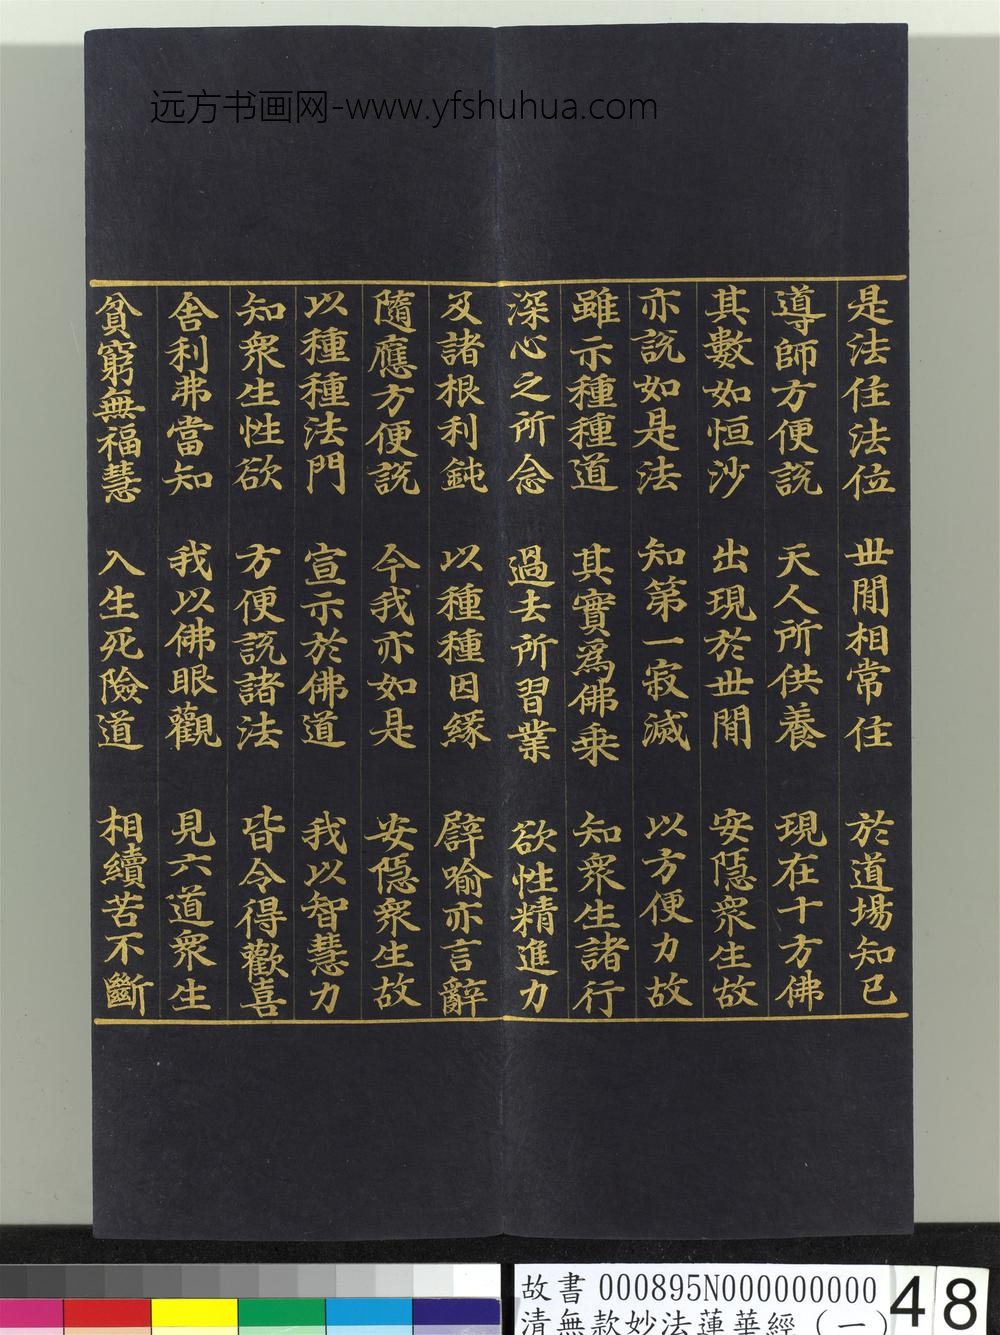 远方书画网-www.yfshuhua.com
是法住法位 世間相常住 於道場知已
導師方便說 天人所供養 現在十方佛
其數如恒沙 出現於世間 安隱眾生故
亦說如是法 知第一寂滅 以方便力故
雖示種種道 其實為佛乗 知眾生諸行
深心之所念 過去所習業 欲性精進力
及諸根利鈍 以種種因緣 譬喻亦言辭
隨應方便說 今我亦如是 安隱眾生故
以種種法門 宣示於佛道 我以智慧力
知眾生性欲 方便說諸法 皆令得歡喜
舍利弗當知 我以佛眼觀 見六道眾生
貧窮無福慧 入生死險道 相續苦不斷
故書 000895N000000000 48
清無款妙法蓮華經（一）